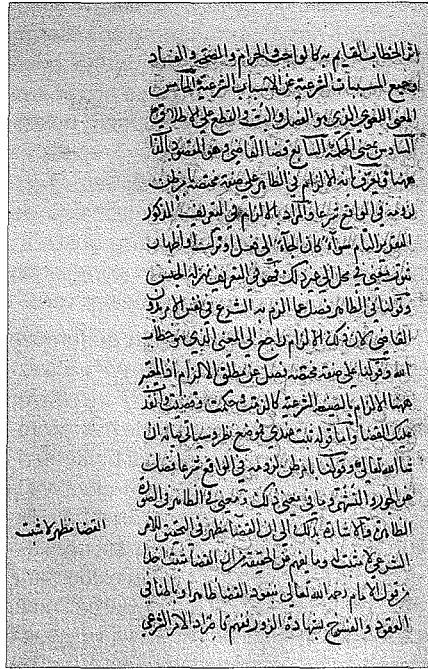 اثر الخطاب القايم به كالواجب والحرام والصحة والفساد
وجميع المسببات الشرعية عن الاسباب الشرعية الخامس
المعنى اللغوي الذي هو الفصل والبت والقطع على الاطلاق
السادس معنى الحكمة السابع قضا القاضي وهو المقصود
ههنا وتعرف انه الالزام في الظاهر على صفة مختصة بامر ظن
لزومه في الواقع شرعا والمراد بالالزام في التعريف المذكور
التقدير التام سوآء كان الجآء الى فعل او ترك او اظهار
ثبوت معنى في محل الى غير ذلك فهو في التعريف بمنزلة الجنس
وقولنا في الظاهر فصل عما الزم به الشرع في نفس الامر بدون
القاضي لان ذلك الالزام راجع الى المعنى الذي هو خطاب
الله وقولنا على صفة مختصة فصل عن مطلق الالزام اذ المعتبر
ههنا الالزام بالصيغ الشرعية كالزمت وحكمت وقضيت وانفذت
عليك القضا واما قوله ثبت عندي فموضع نظر وسياتي بيانه ان
شا الله تعالى وقولنا بامر ظن لزومه في الواقع شرعا فصل
هو الجور والتشهي وما في معنى ذلك ومعنى في الظاهر في الصورة
الظاهرة والاشارة بذلك الى ان القضا مظهر في التحقيق للامر
الشرعي لا مثبت له وما يفهم من الحقيقة من ان القضا مثبت اخذا
من قول الامام رحمه الله تعالى بنفوذ القضا ظاهرا وباطنا في
العقود والفسوخ بشهادة الزور يفهم بان يراد الامر الشرعي
القضا مظهر لا مثبت